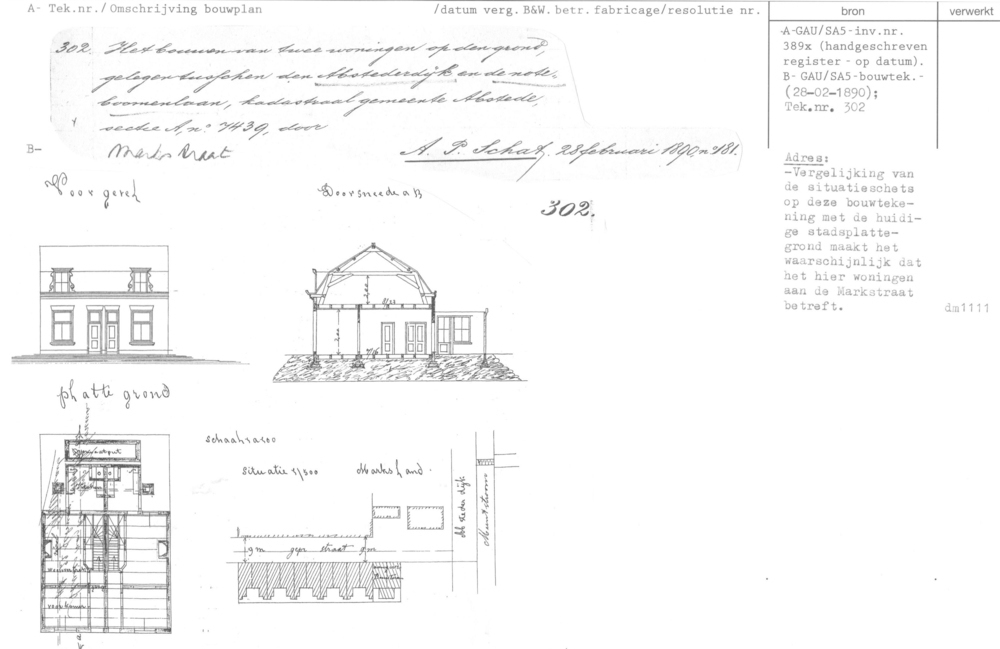 A- Tek.nr./ Omschrijving bouwplan /datum verg. B&W. betr. fabricage/resolutie nr. bron verwerkt
302. Het bouwen van twee woningen op den grond,
gelegen tusschen den Abstederdijk en de note-
boomenlaan, kadastraal gemeente Abstede,
sectie A, no 7439, door
A. P. Schat, 28 februari 1890, no 181.
B-
Markstraat
A-GAU/SA5-inv.nr.
389x (handgeschreven
register - op datum).
B- GAU/SA5-bouwtek.-
(28-02-1890);
Tek.nr. 302
Adres:
-Vergelijking van
de situatieschets
op deze bouwteke-
ning met de huidi-
ge stadsplatte-
grond maakt het
waarschijnlijk dat
het hier woningen
aan de Markstraat
betreft.
dm1111
Voor gevel
Doorsneede a B
302.
platte grond
voorkamer
Schaal 1 a 100
Situatie 1/500
Marksland.
9 m gepr straat 9 m
Abstederdijk
Minstroom